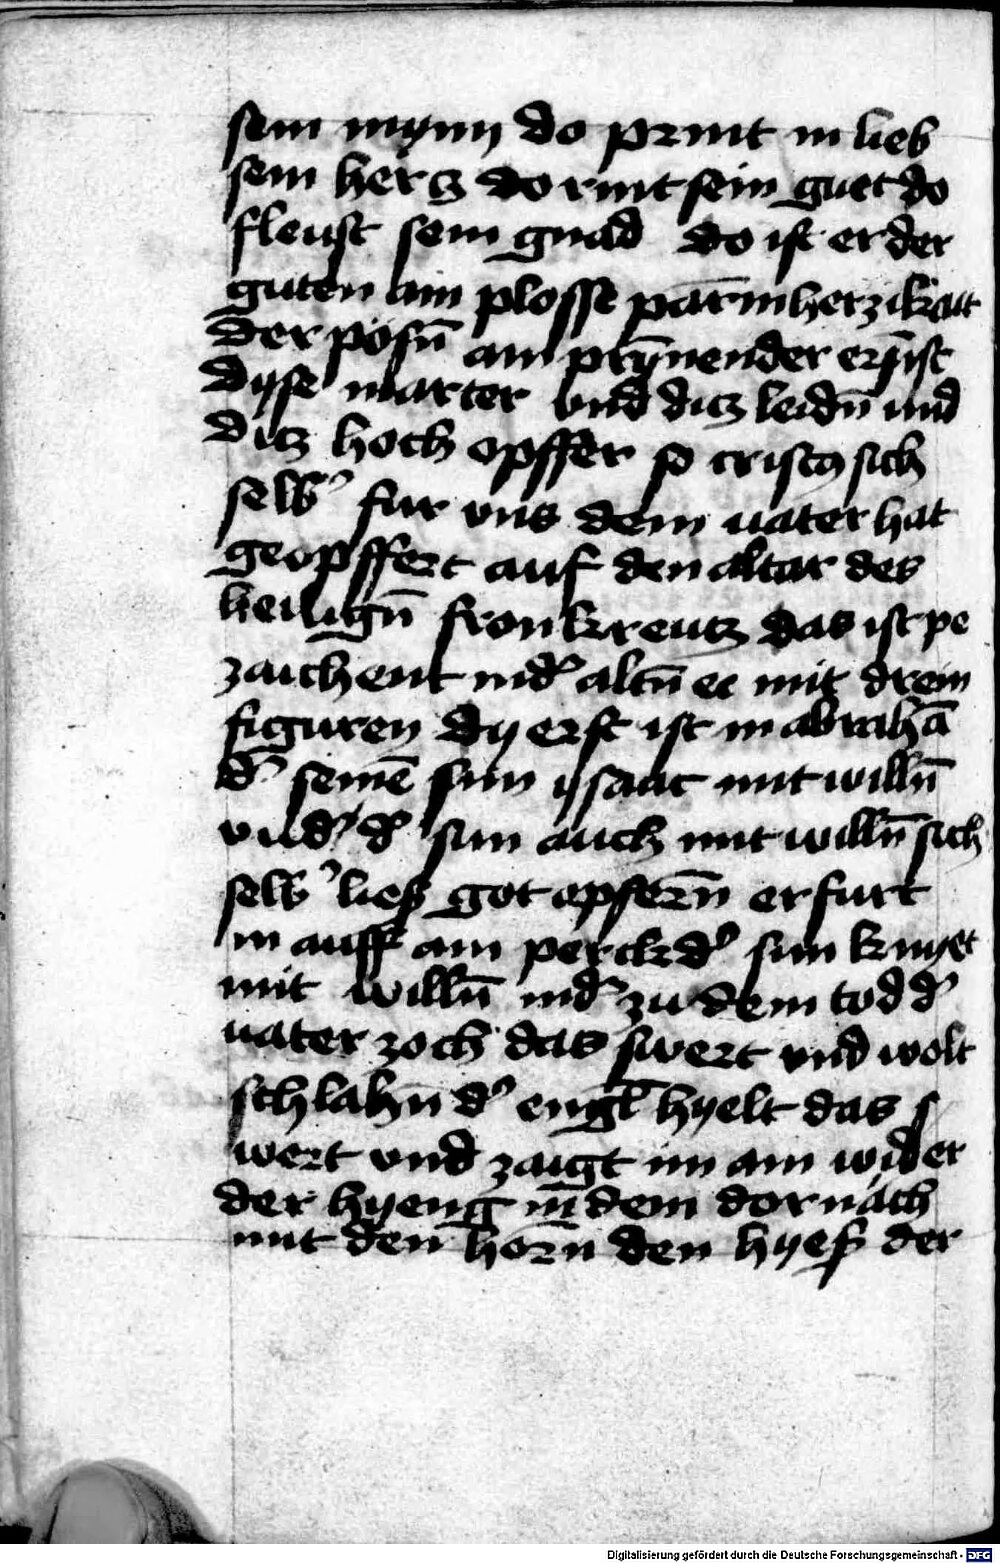 sein mynn do print in lieb
sein hertz do rint sein guet do
fleust sein gnad do ist er der
guten ain plosse parm̄herzikait
der pösn̄ ain prȳnender ernst
dyse marter vnd ditz leidn̄ und
ditz hoch opffer so cristꝯ sich
selbs fur uns dem uater hat
geopffert auf den altar des
heilign̄ fronkreutz das ist pe
zaichent in d᾽ altn̄ ee mit drein
figuren dy erst ist in abrahā
d᾽ seinē sun ysaac mit willn̄
vnd d᾽ sun auch mit willn̄ sich
selb᾽ lieſz got opfern̄ er furt
in auff ain perck d᾽ sun knyet
mit willn̄ nid᾽ zu dem tod d᾽
uater zoch das swert vnd wolt
schlahn̄ d᾽ engl̄ hyelt das s
wert vnd zaigt im ain wider
der hyeng in̄ dem dornach
mit den horn̄ den hyesz der
Digitalisierung gefördert durch die Deutsche Forschungsgemeinschaft - DFG